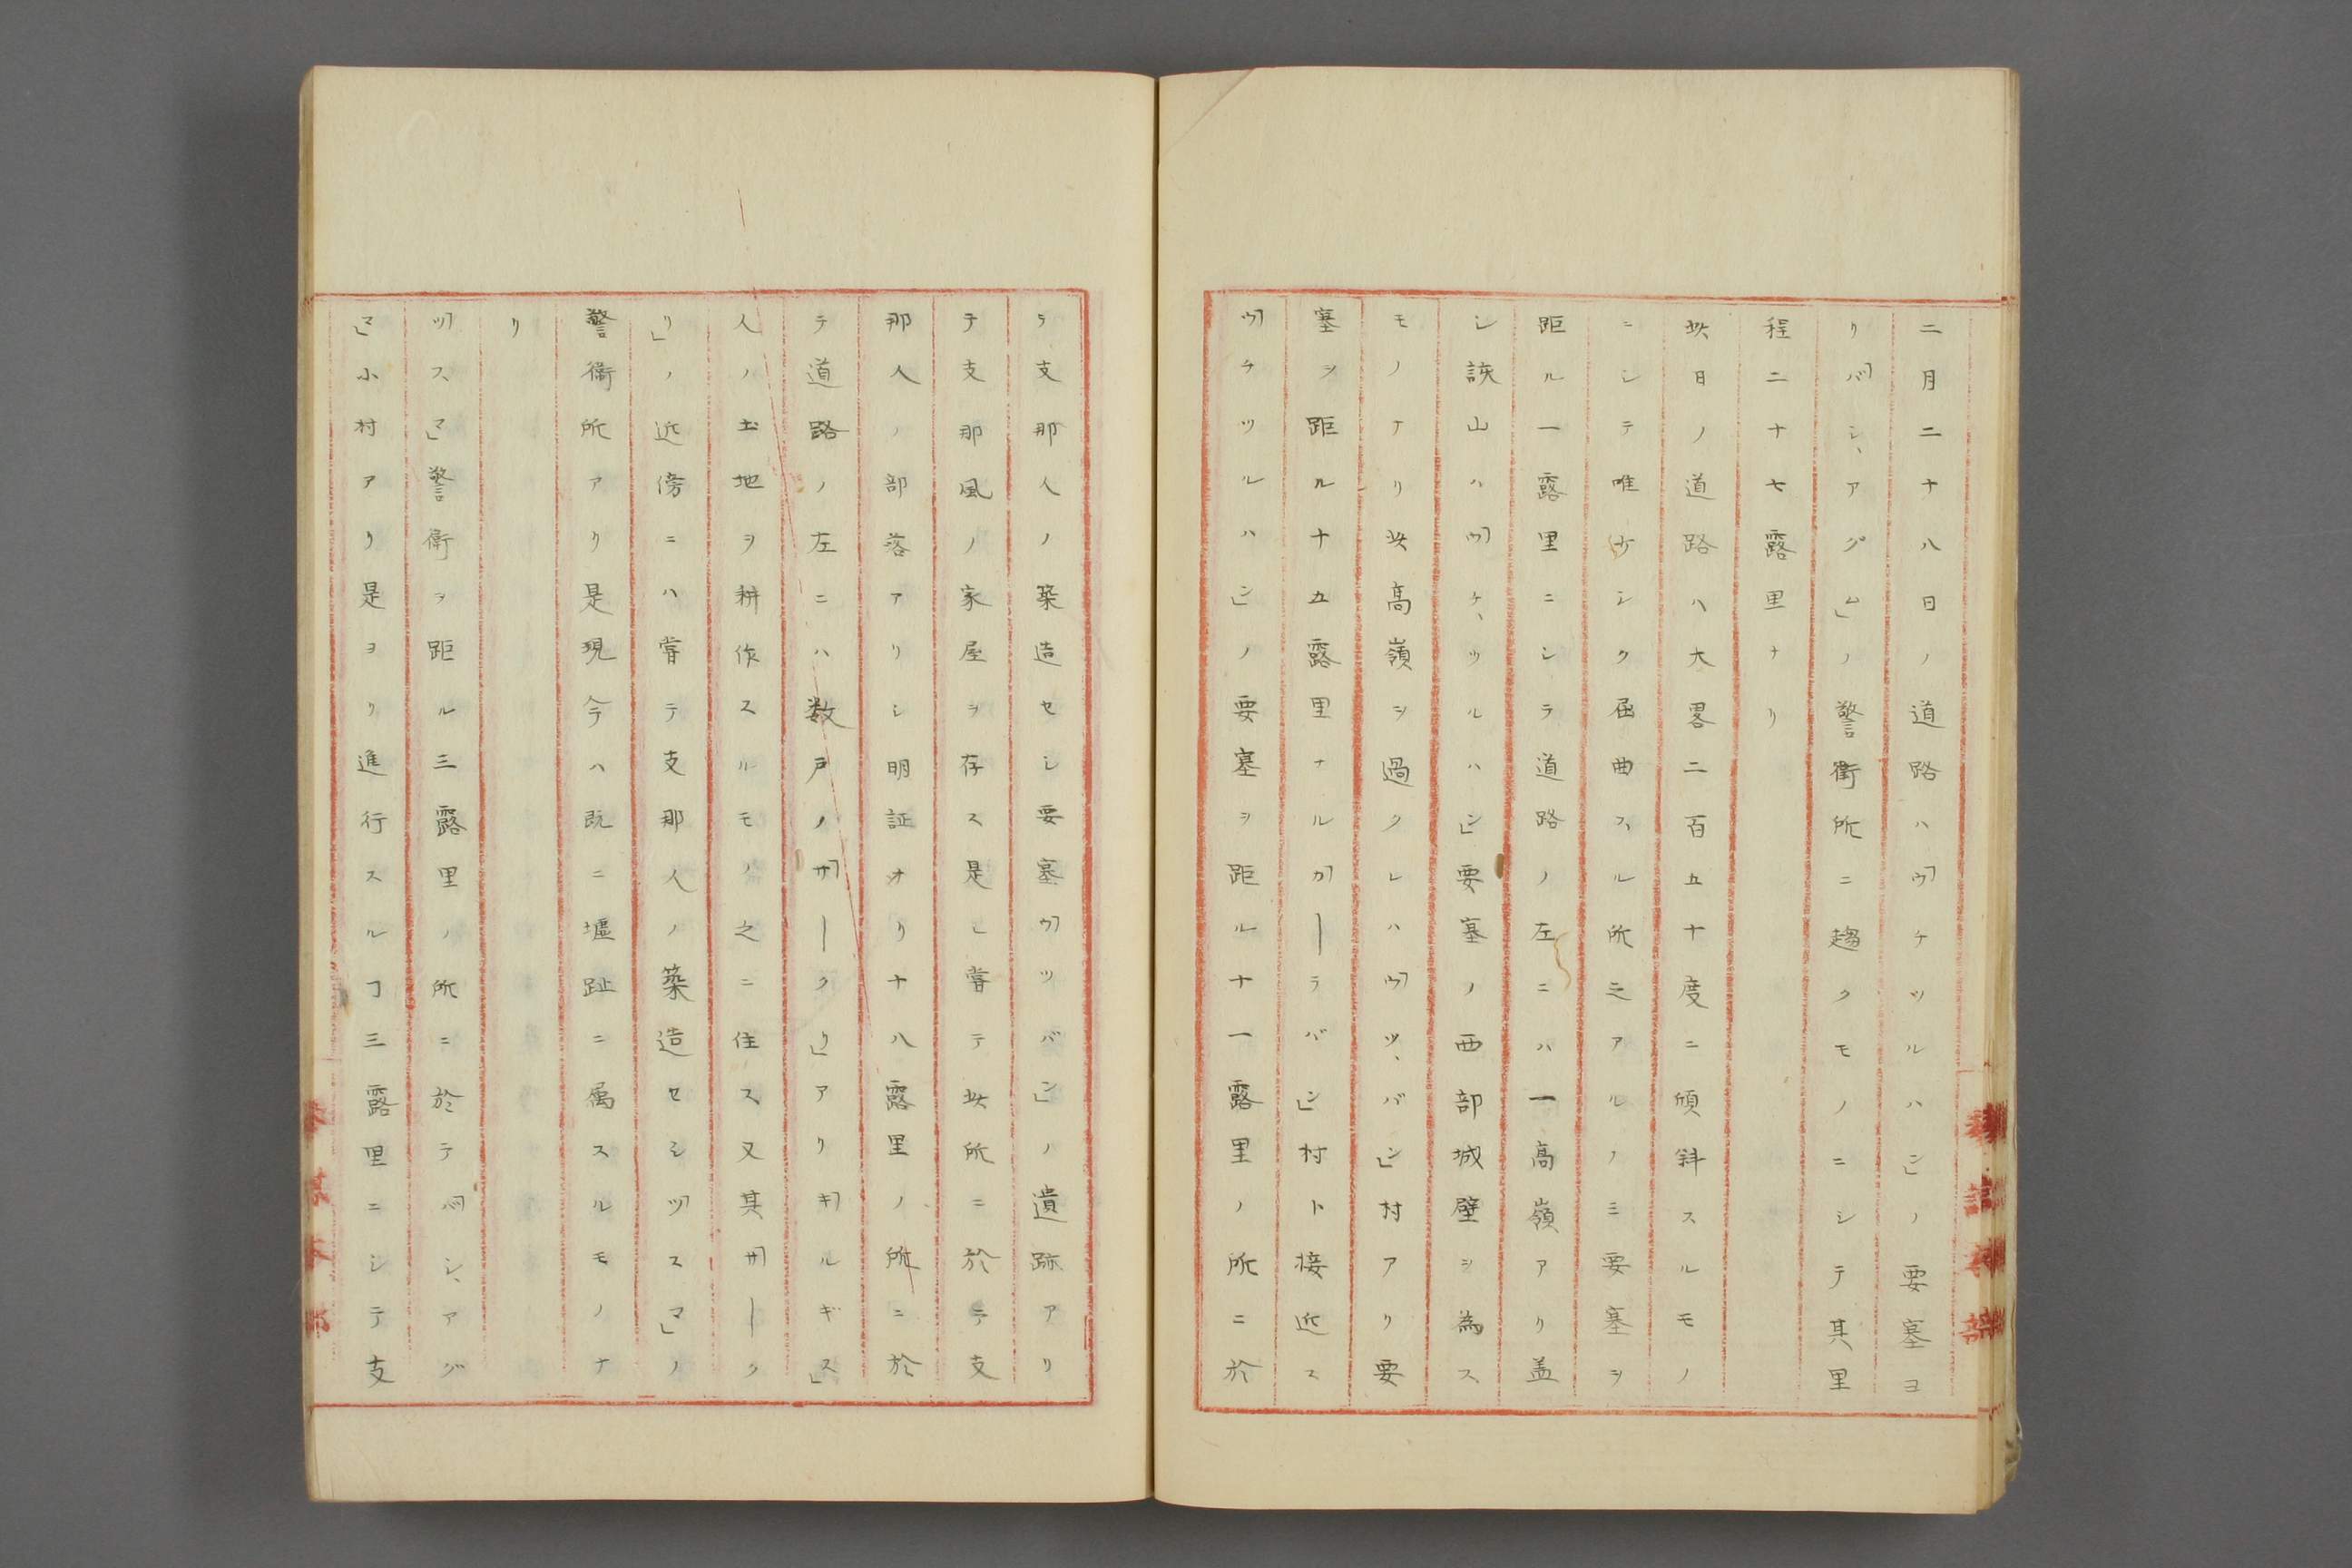 二月二十八日ノ道路ハ「ウチツルハン」ノ要塞ヨ
リ「バシ、アグム」ノ警衛所ニ趨クモノニシテ其里
程二十七露里ナリ
此日ノ道路ハ大畧二百五十度ニ傾斜スルモノ
ニシテ唯少シク屈曲スル所之アルノミ要塞ヲ
距ル一露里ニシテ道路ノ左ニハ一高嶺アリ蓋
シ該山ハ「ウチ、ツルハン」要塞ノ西部城壁ヲ為ス
モノナリ此高嶺ヲ過クレハ「ウツ、バン」村アリ要
塞ヲ距ル十五露里ナル「カーラバン」村ト接近ス
「ウチツルハン」ノ要塞ヲ距ル十一露里ノ所ニ於
テ支那人ノ築造セシ要塞「ウツバン」ノ遺跡アリ
テ支那風ノ家屋ヲ存ス是レ嘗テ此所ニ於テ支
那人ノ部落アリシ明証オリ十八露里ノ所ニ於
テ道路ノ左ニハ数戸ノ「サークリ」アリ「キルギス」
人ノ土地ヲ耕作スルモノ之ニ住ス又其「サーク
リ」ノ近傍ニハ嘗テ支那人ノ築造セシ「ツスマ」ノ
警衛所アリ是現今ハ既ニ墟趾ニ属スルモノナ
リ
「ツスマ」警衛ヲ距ル三露里ノ所ニ於テ「バシ、アグ
マ」小村アリ是ヨリ進行スルヿ三露里ニシテ支